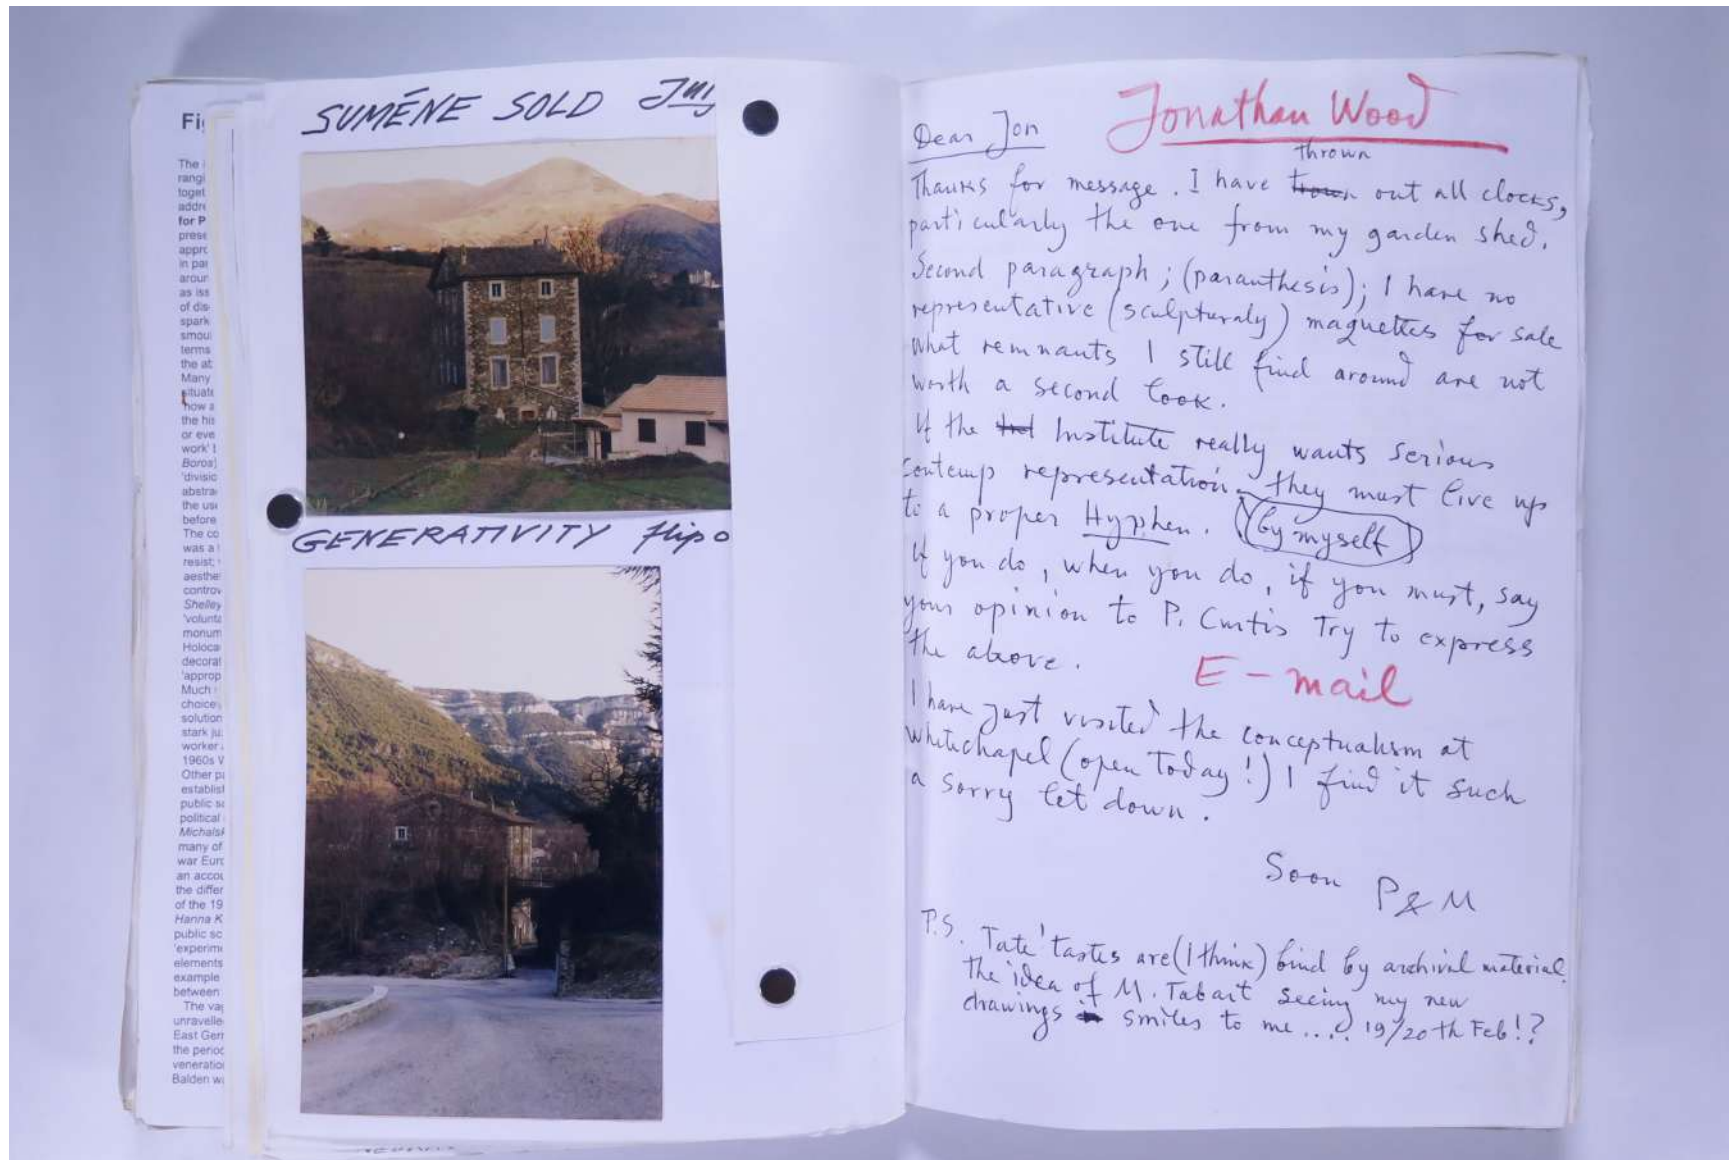 Fi
The
rangi
toget
addre
for P
prese
appro
in par
aroun
as iss
of dis
spark
smoul
terms
the at
Many
situate
how a
the his
or eve
work'
Boros)
'divisio
abstra
the use
before
The co
was a
resist;
aesthe
controv
Shelley
'volunta
monum
Holoca
decorat
'approp
Much
choice
solution
stark ju
worker
1960s V
Other pa
establis
public sc
political
Michalsk
many of
war Euro
an accou
the differ
of the 19
Hanna K
public sc
'experime
elements
example
between
The va
unravelle
East Germ
the period
veneration
Balden wa
SUMÉNE SOLD July
GENERATIVITY flip o
Jonathan Wood
Dear Jon
thrown
Thanks for message. I have trown out all clocks,
particularly the one from my garden shed.
Second paragraph; (paranthesis); I have no
representative (sculpturaly) maquettes for sale
what remnants I still find around are not
worth a second look.
If the Institute really wants serious
contemp representation they must live up
to a proper Hyphen. (by myself)
If you do, when you do, if you must, say
your opinion to P. Curtis Try to express
the above.
E-mail
I have just visited the conceptualism at
Whitechapel (open today!) I find it such
a sorry let down.
Soon P&M
P.S. Tate' tastes are (I think) bind by archival material
the idea of M. Tabart seeing my new
drawings smiles to me.... 19/20th Feb!?